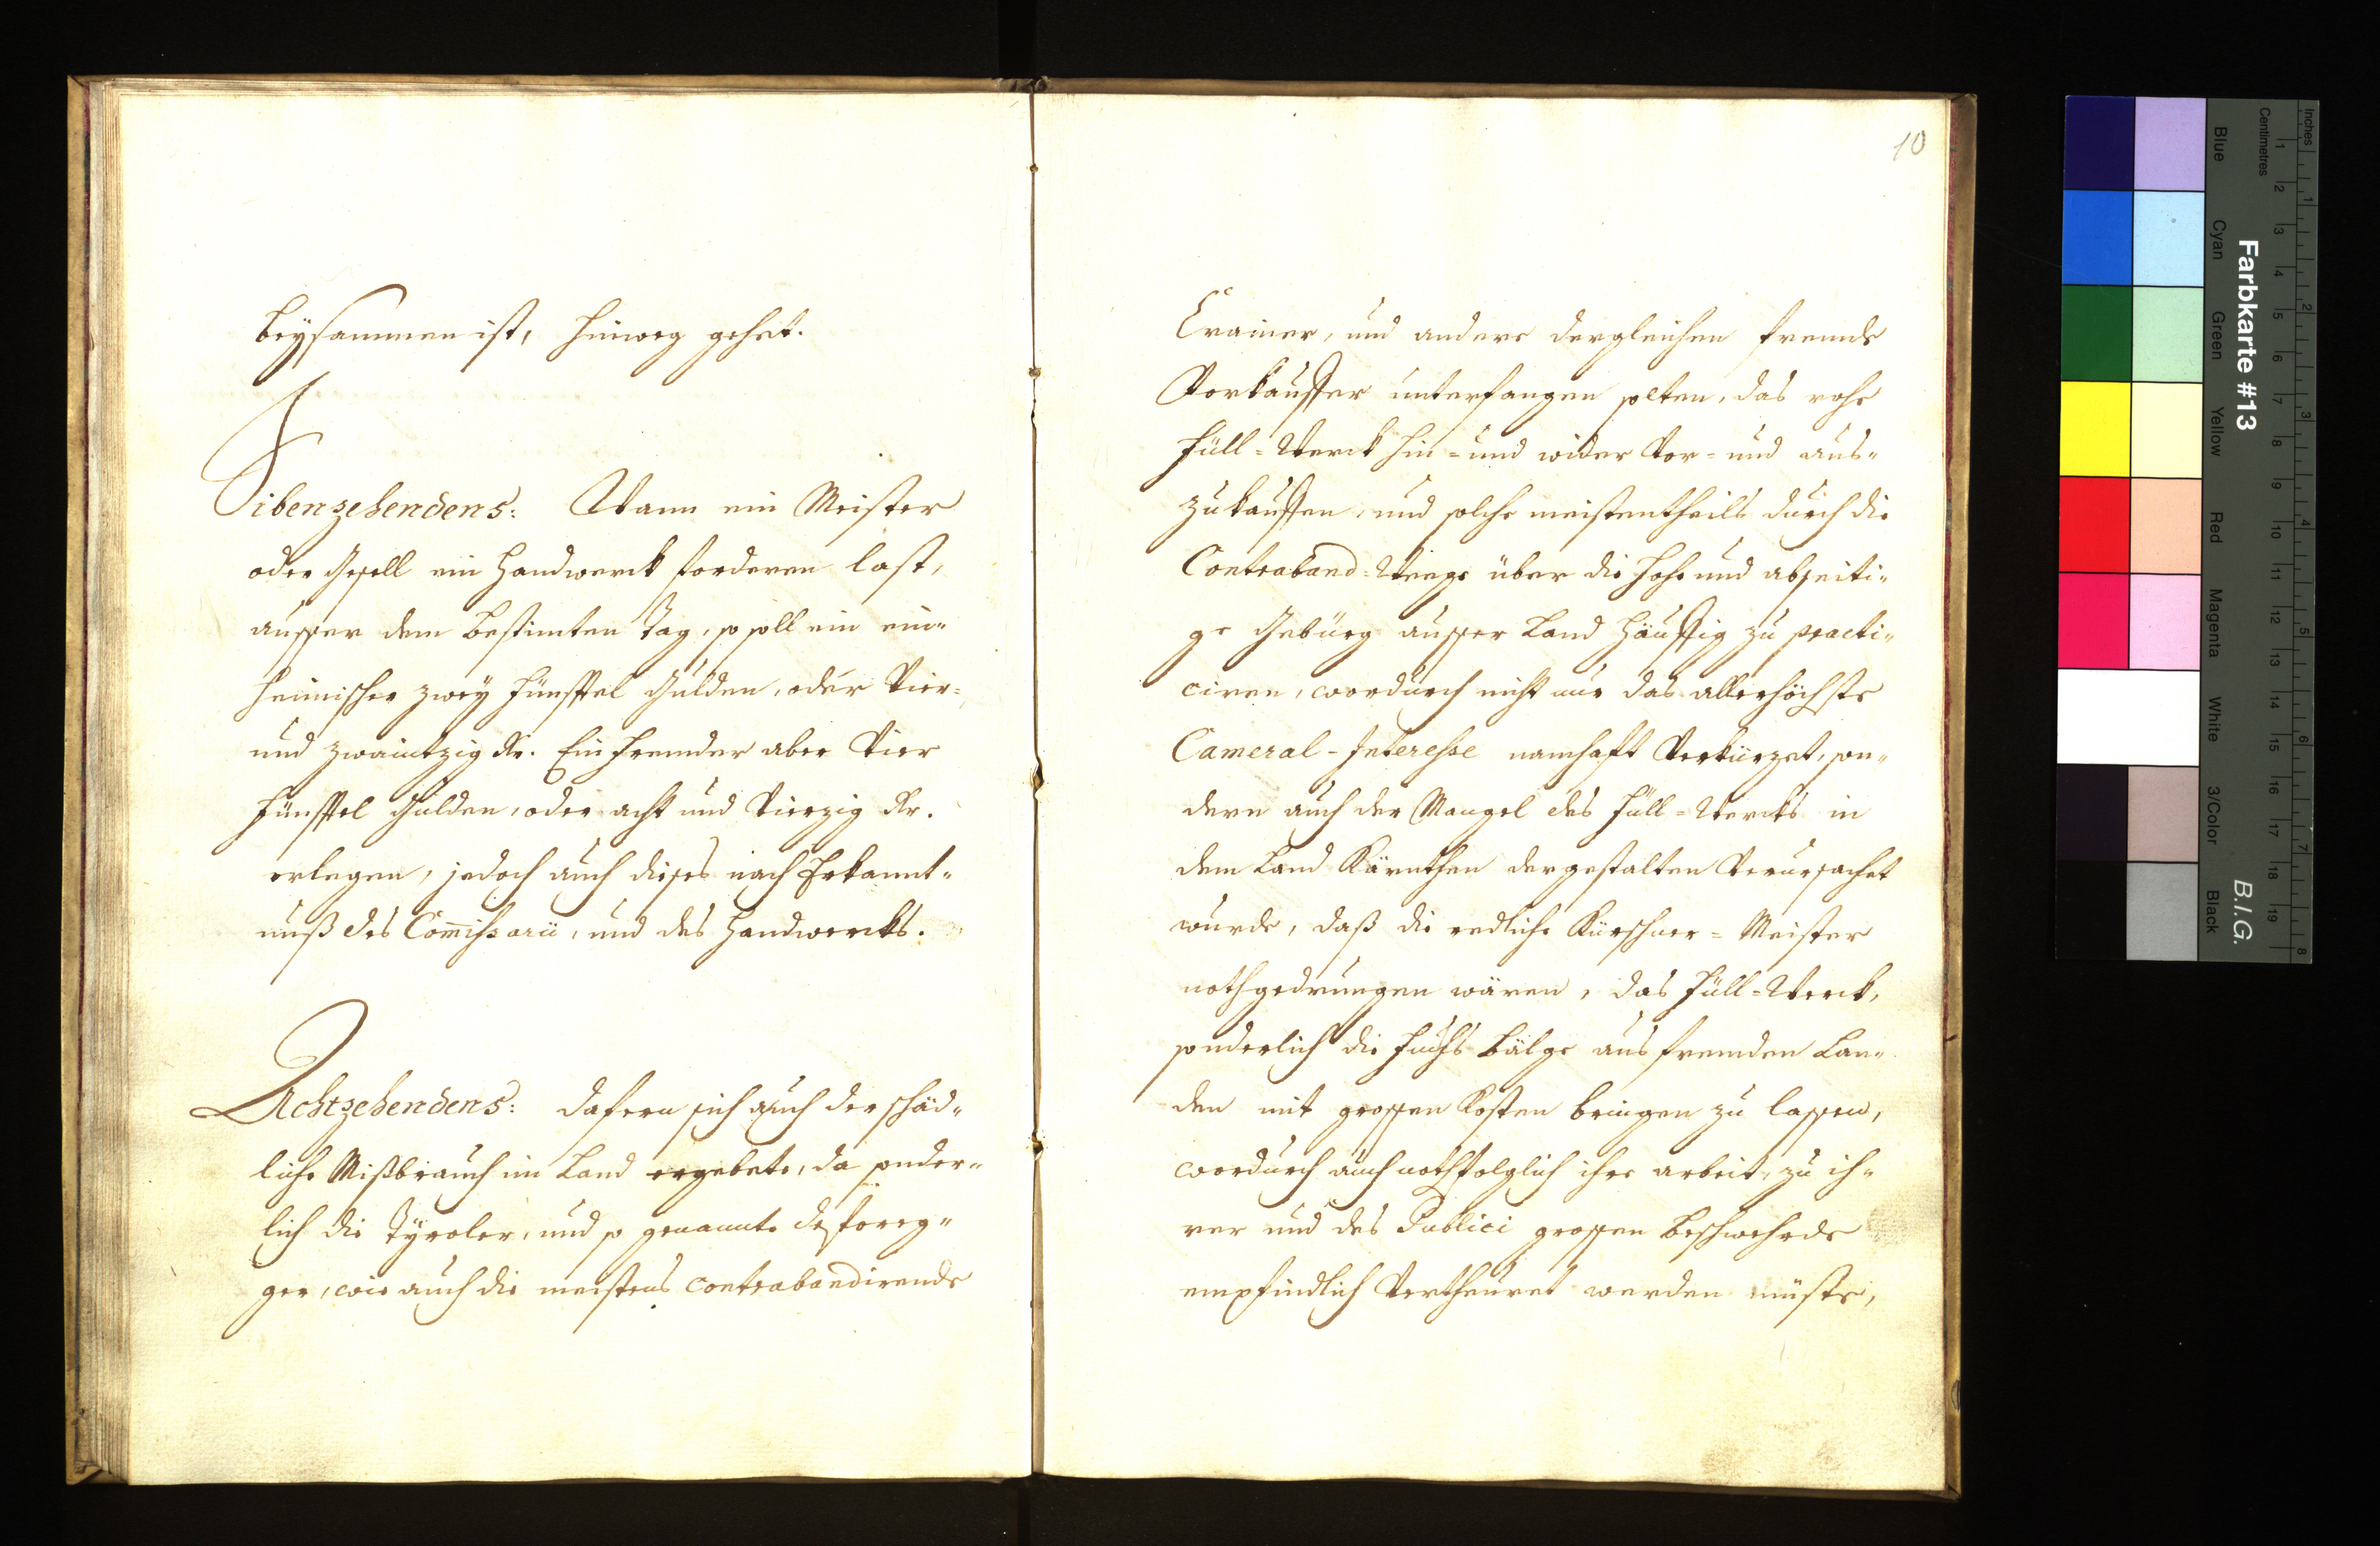 beysammen ist, hinweg gehet.
Sibenzehendens: Wann ein Meister
oder Gesell ein Handwerck forderen last,
ausser dem bestimten Tag, so soll ein ein-
heimischer zwey fünfftel Gulden, oder Vier-
und zwaintzig Kr. Ein Frembder aber Vier
fünfftel Gulden, oder acht und Vierzig Kr.
erlegen, jedoch auch dises nach Erkannt-
nuß des Com̄issarii, und des Handwercks.
Achtzehendens: Dafern sich auch der schäd-
liche Mißbrauch im Land ergebete, da sonder-
lich die Tÿroler, und so genannte Deffereg-
ger, wie auch die meistens contrabandirende
10
Crainer, und andere dergleichen fremde
Vorkäuffer unterfangen solten, das rohe
Füll-Werck hin- und wider Vor- und aus-
zukauffen, und solche meistentheils durch die
Contraband-Weege über die hohe und abseiti-
ge Gebürg ausser Land häuffig zu practi-
ciren, wordurch nicht nur das allerhöchste
Cameral-Interesse namhafft Verkürzet, son-
dern auch der Mangel des Füll-Wercks in
dem Land Kärnthen dergestalten Verursachet
wurde, daß die redliche Kürschner-Meister
nothgedrungen wären, das Füll-Werck,
sonderlich die Fuchs Bälge aus fremden Lan-
den mit grossen Kosten bringen zu lassen,
wordurch auch nothfolglich ihre arbeit, zu ih-
rer und des Publici grossen Beschwehrde
empfindlich Vertheuret werden müste,
Farbkarte #13
B.I.G.
Inches 1 2 3 4 5 6 7 8
Centimetres 1 2 3 4 5 6 7 8 9 10 11 12 13 14 15 16 17 18 19
Blue Cyan Green Yellow Red Magenta White 3/Color Black